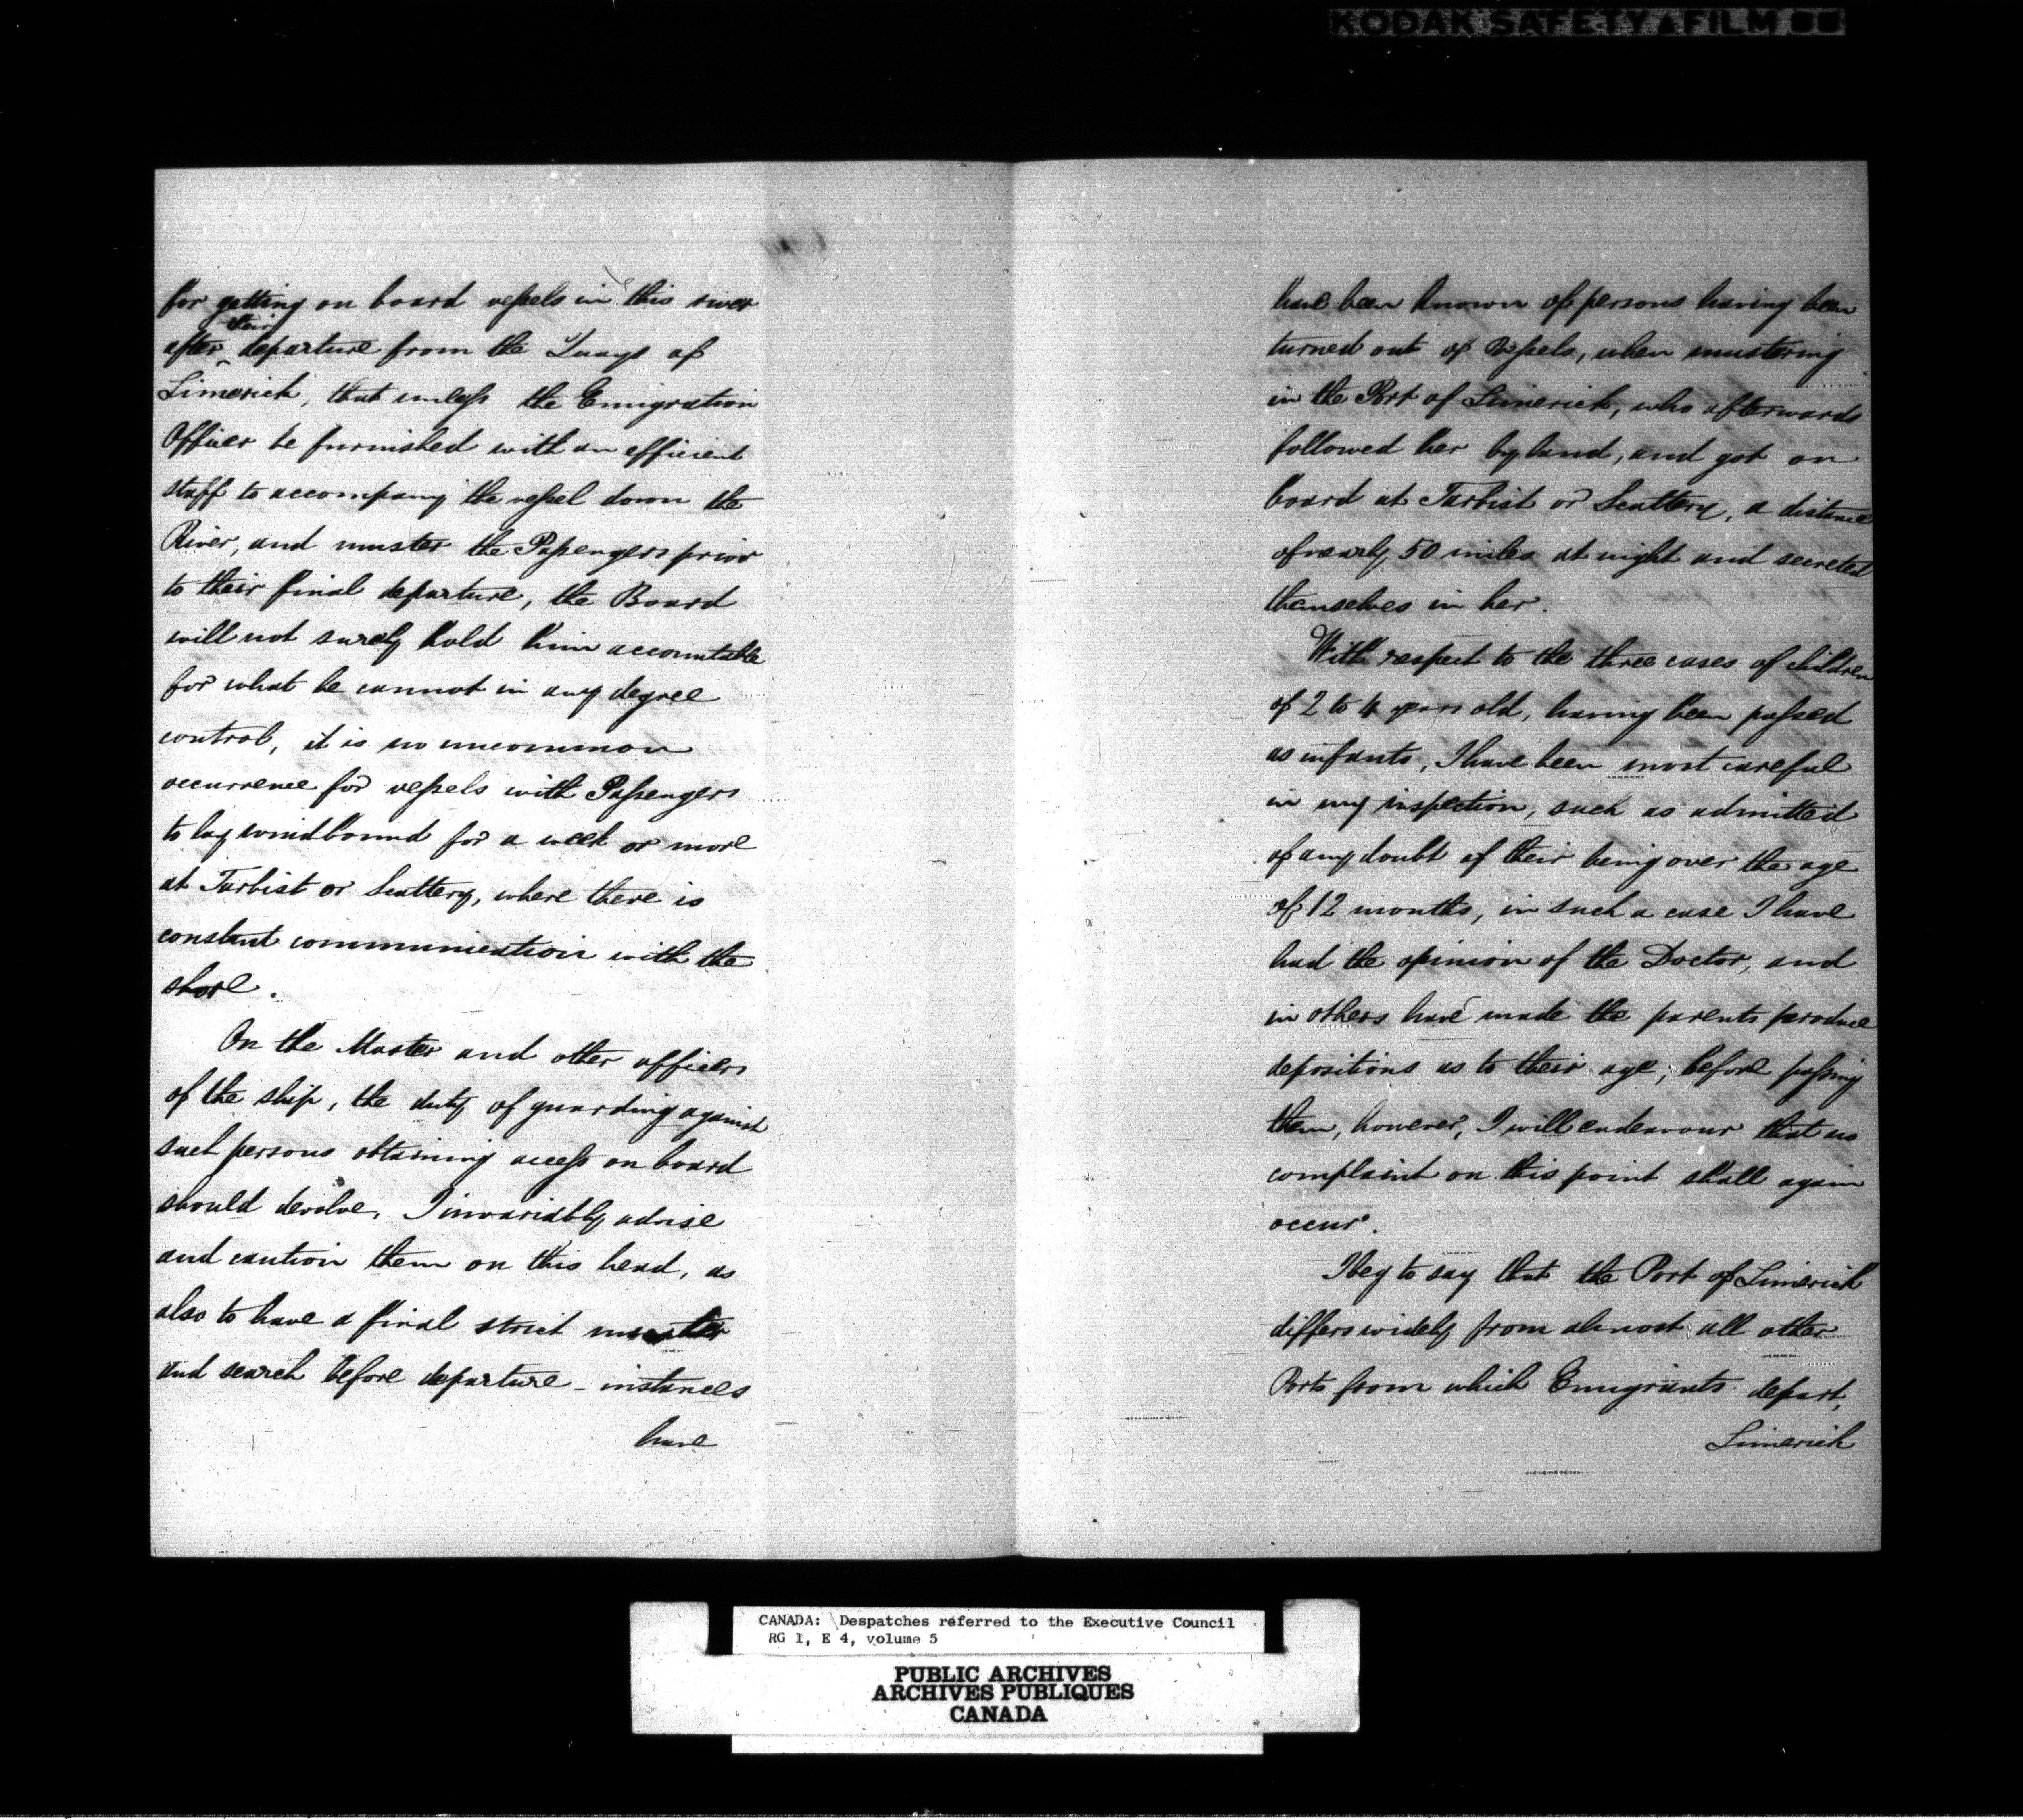 KODAK SAFETY FILM
for getting on board vessels in this river
their
after departure from the Quays of
Limerick, that unless the Emigration
Officer be furnished with an efficient
staff to accompany the vessel down the
River, and muster the Passengers prior
to their final departure, the Board
will not surely hold him accountable
for what he cannot in any degree
control, it is no uncommon
occurrence for vessels with Passengers
to lay windbound for a week or more
at Tarbist or Scattery, where there is
constant communication with the
shore.
On the Master and other officers
of the ship, the duty of guarding against
such persons obtaining access on board
should devolve, I invariably advise
and caution them on this head, as
also to have a final strict muster
and search before departure - instances
have
have been known of persons having been
turned out of Vessels, when mustering
in the Port of Limerick, who afterwards
followed her by land, and got on
board at Tarbist or Scattery, a distance
of nearly 50 miles at night and secreted
themselves in her.
With respect to the three cases of children
of 2 to 4 years old, having been passed
as infants, I have been most careful
in my inspection, such as admitted
of any doubt of their being over the age
of 12 months, in such a case I have
had the opinion of the Doctor, and
in others have made the parents produce
depositions as to their age, before passing
them, however, I will endeavour that no
complaint on this point shall again
occur.
I beg to say that the Port of Limerick
differs widely from almost all other
Ports from which Emigrants depart,
Limerick
CANADA: Despatches referred to the Executive Council
RG 1, E 4, volume 5
PUBLIC ARCHIVES
ARCHIVES PUBLIQUES
CANADA